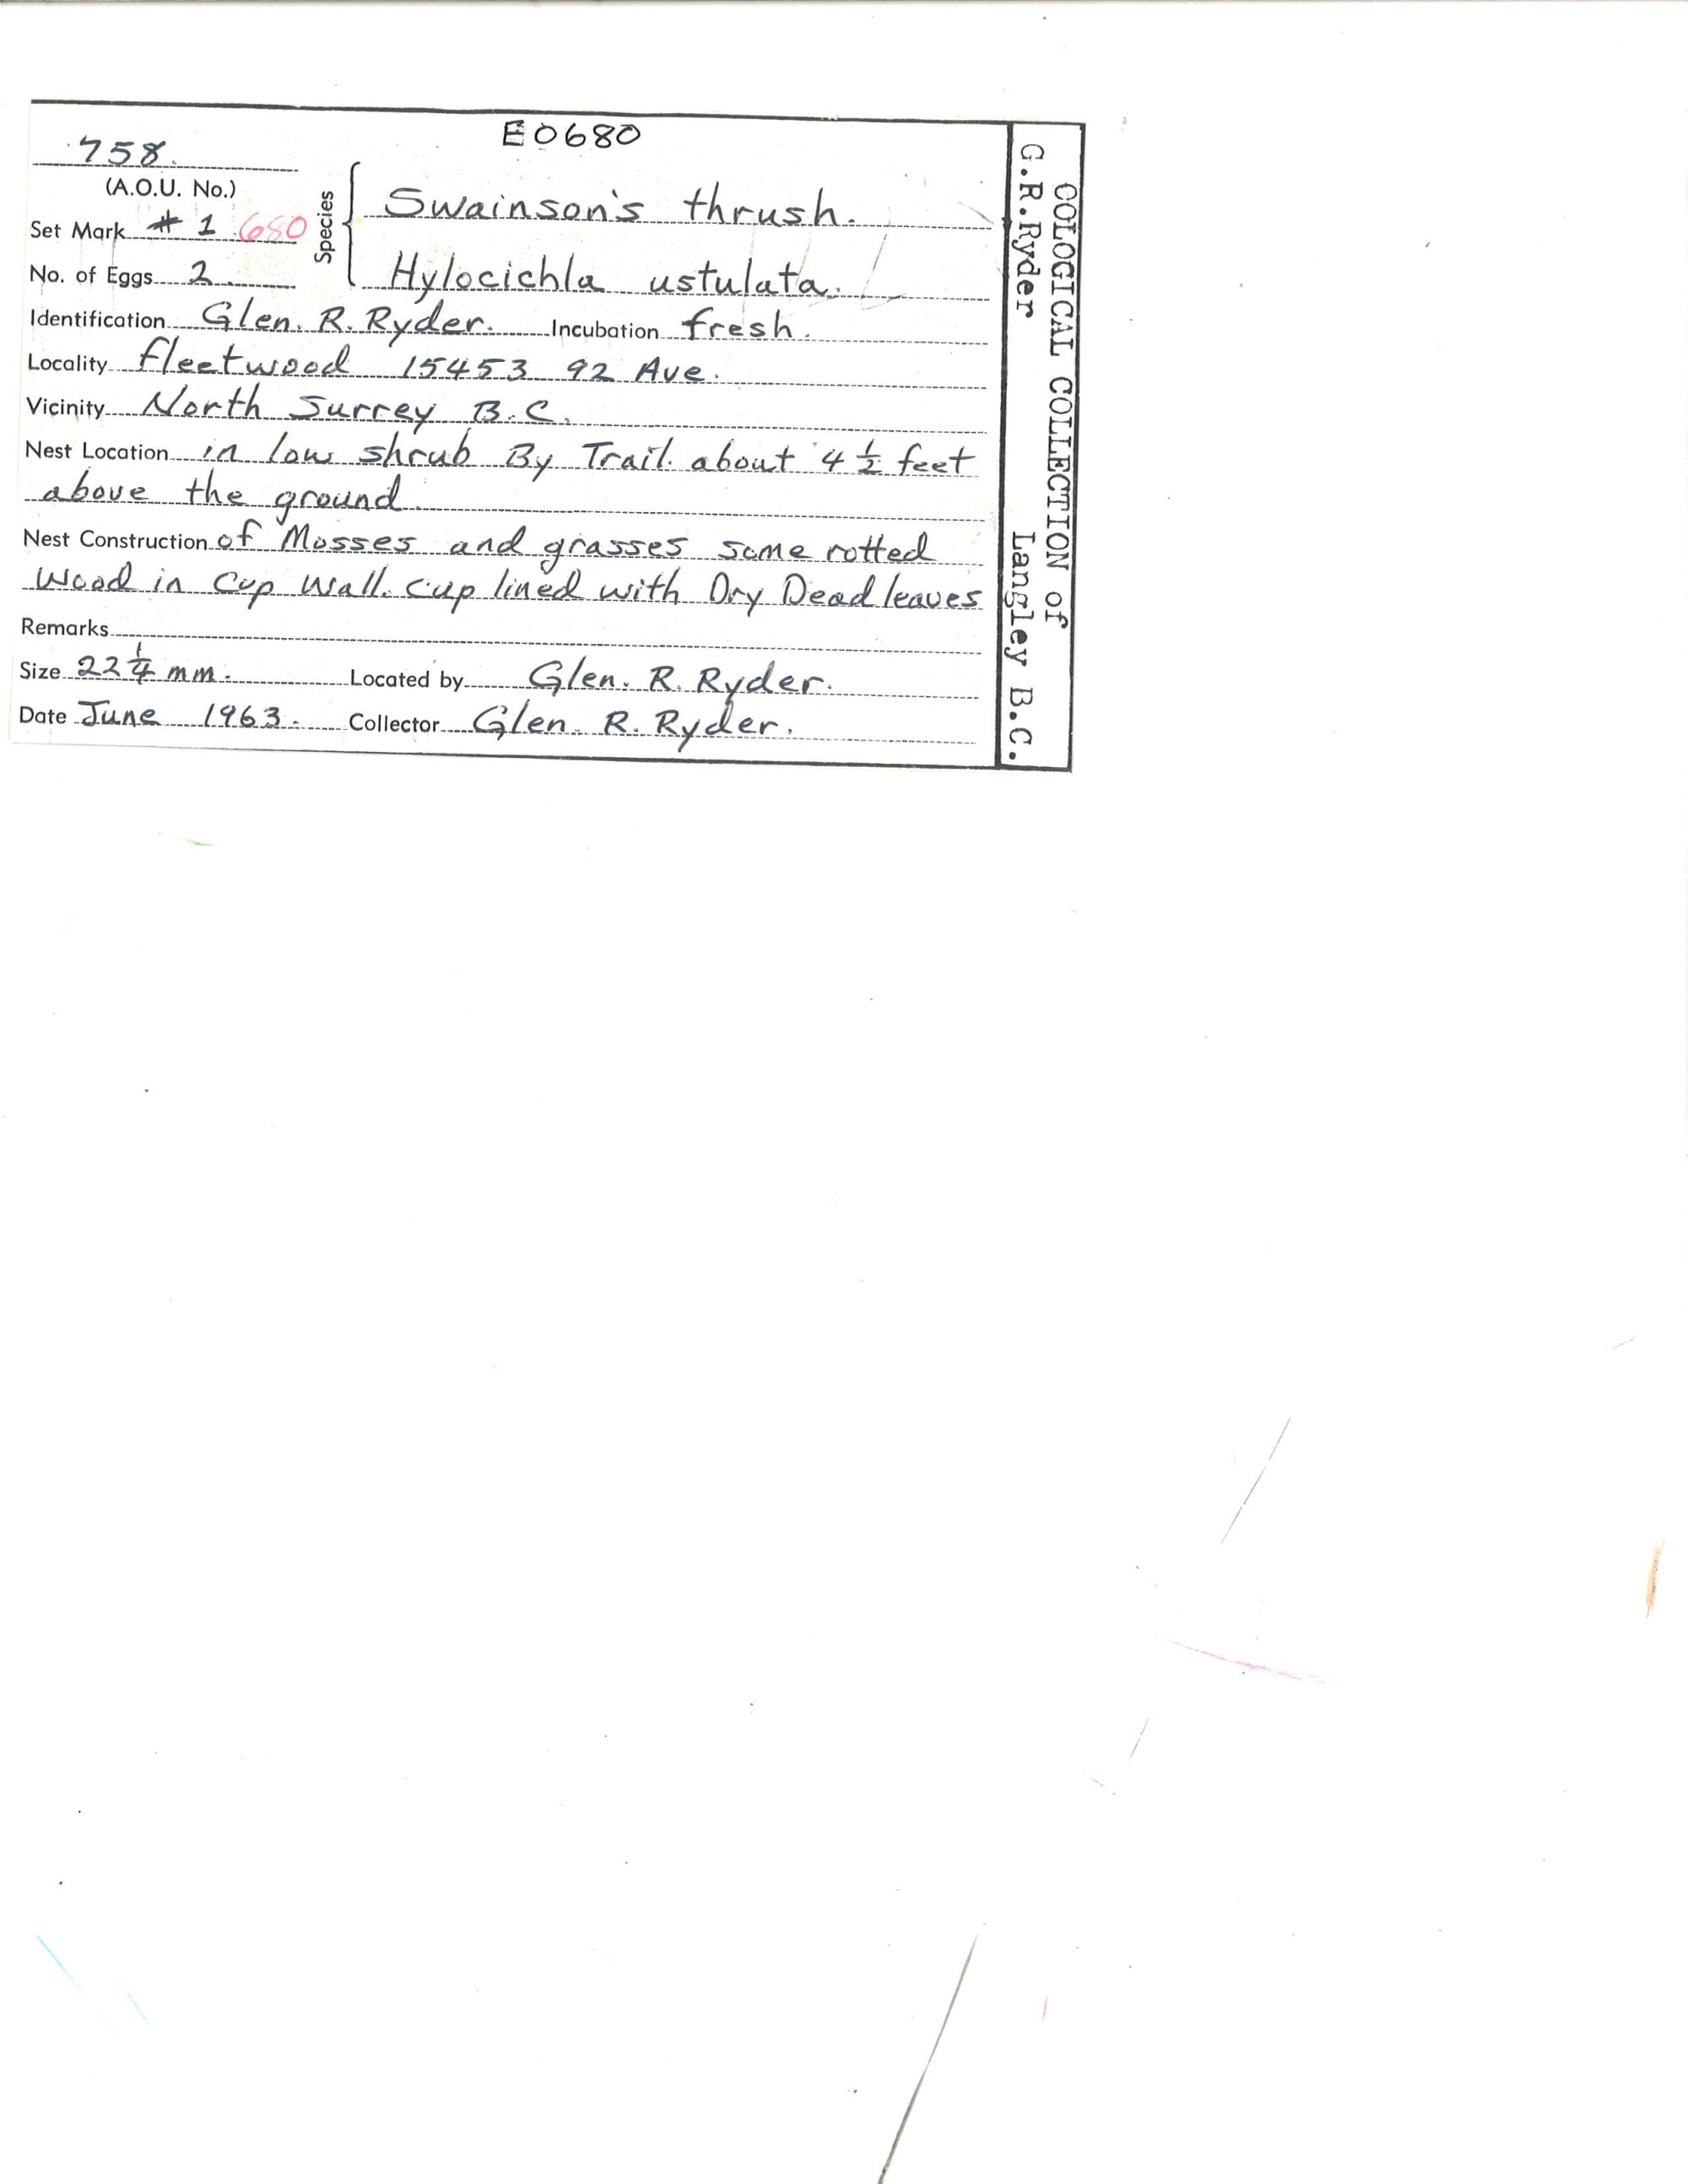 E0680
758.
(A.O.U. No.)
Set Mark # 1 680
No. of Eggs 2
Species
Swainson's thrush.
Hylocichla ustulata.
Identification Glen. R. Ryder. Incubation fresh.
Locality fleetwood 15453 92 Ave.
Vicinity North Surrey B.C.
Nest Location in low shrub By Trail. about 4 1/2 feet
above the ground
Nest Construction of Mosses and grasses some rotted
Wood in Cup Wall. Cup lined with Dry Dead leaves
Remarks
Size 22 1/4 mm. Located by Glen. R. Ryder.
Date June 1963. Collector Glen. R. Ryder.
OOLOGICAL COLLECTION of
G.R.Ryder Langley B.C.